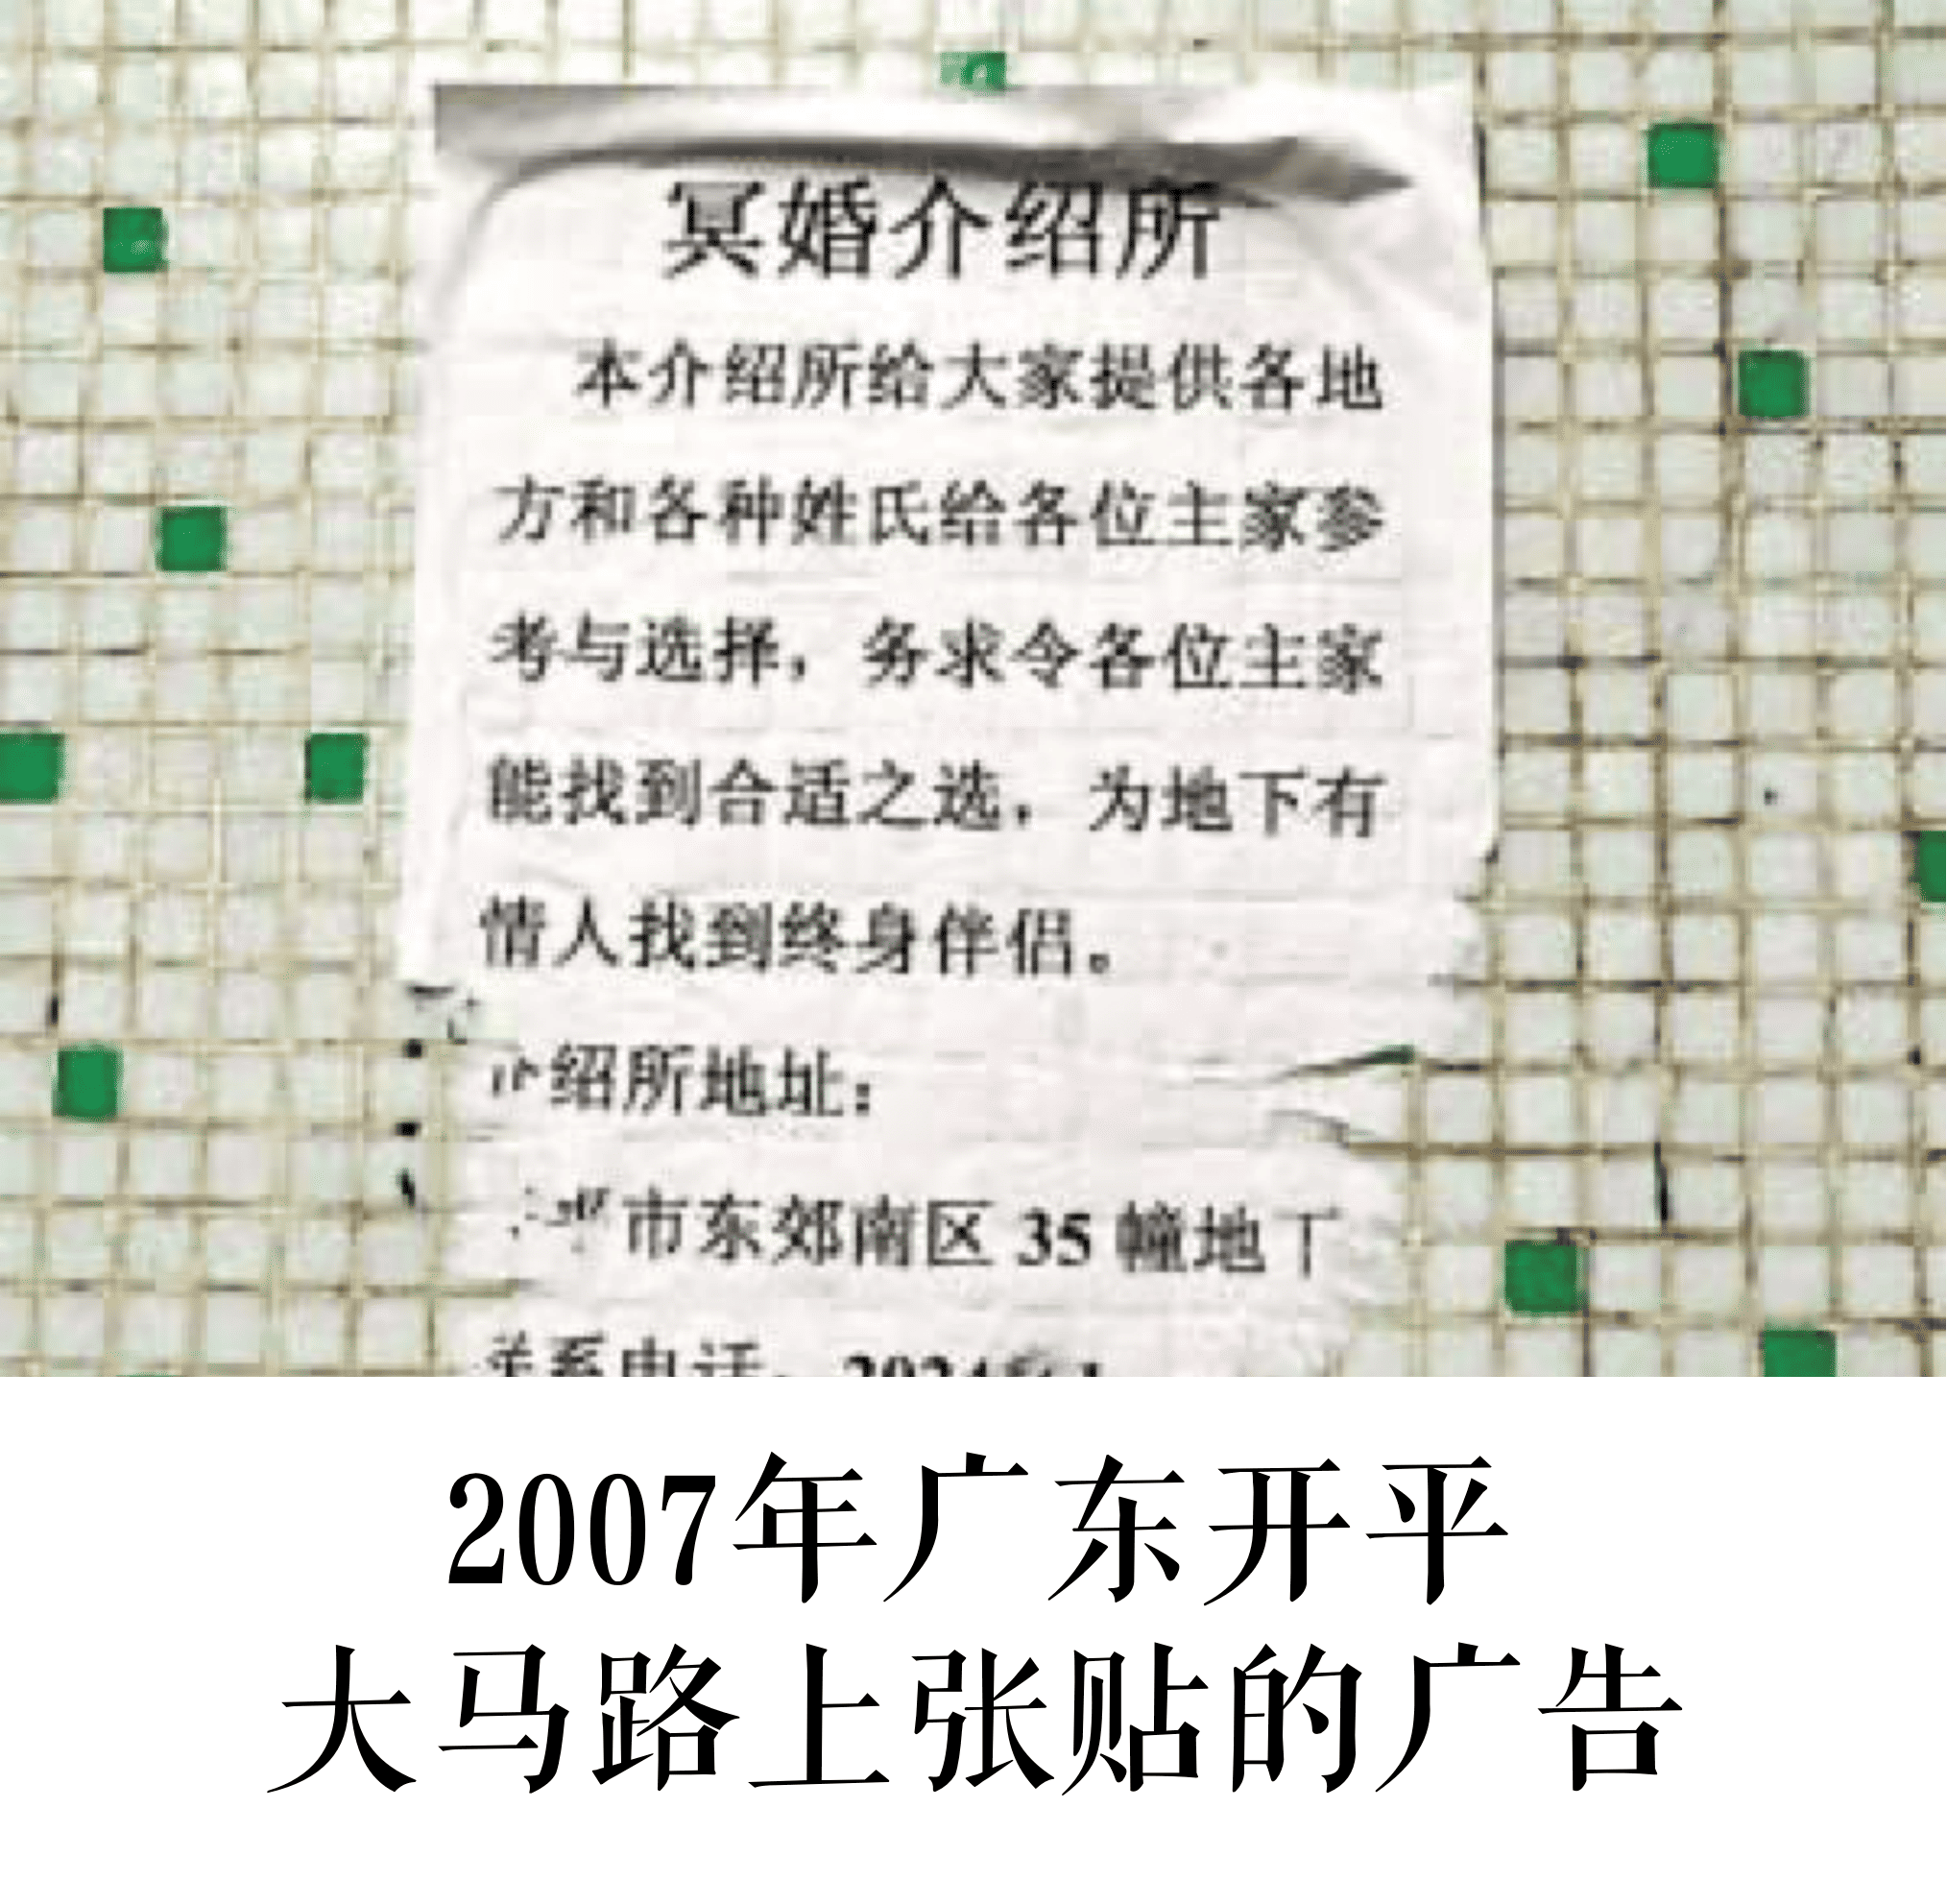 冥婚介绍所
本介绍所给大家提供各地
方和各种姓氏给各位主家参
考与选择，务求令各位主家
能找到合适之选，为地下有
情人找到终身伴侣。
介绍所地址：
市东郊南区 35 幢地下
联系电话：
2007年广东开平
大马路上张贴的广告